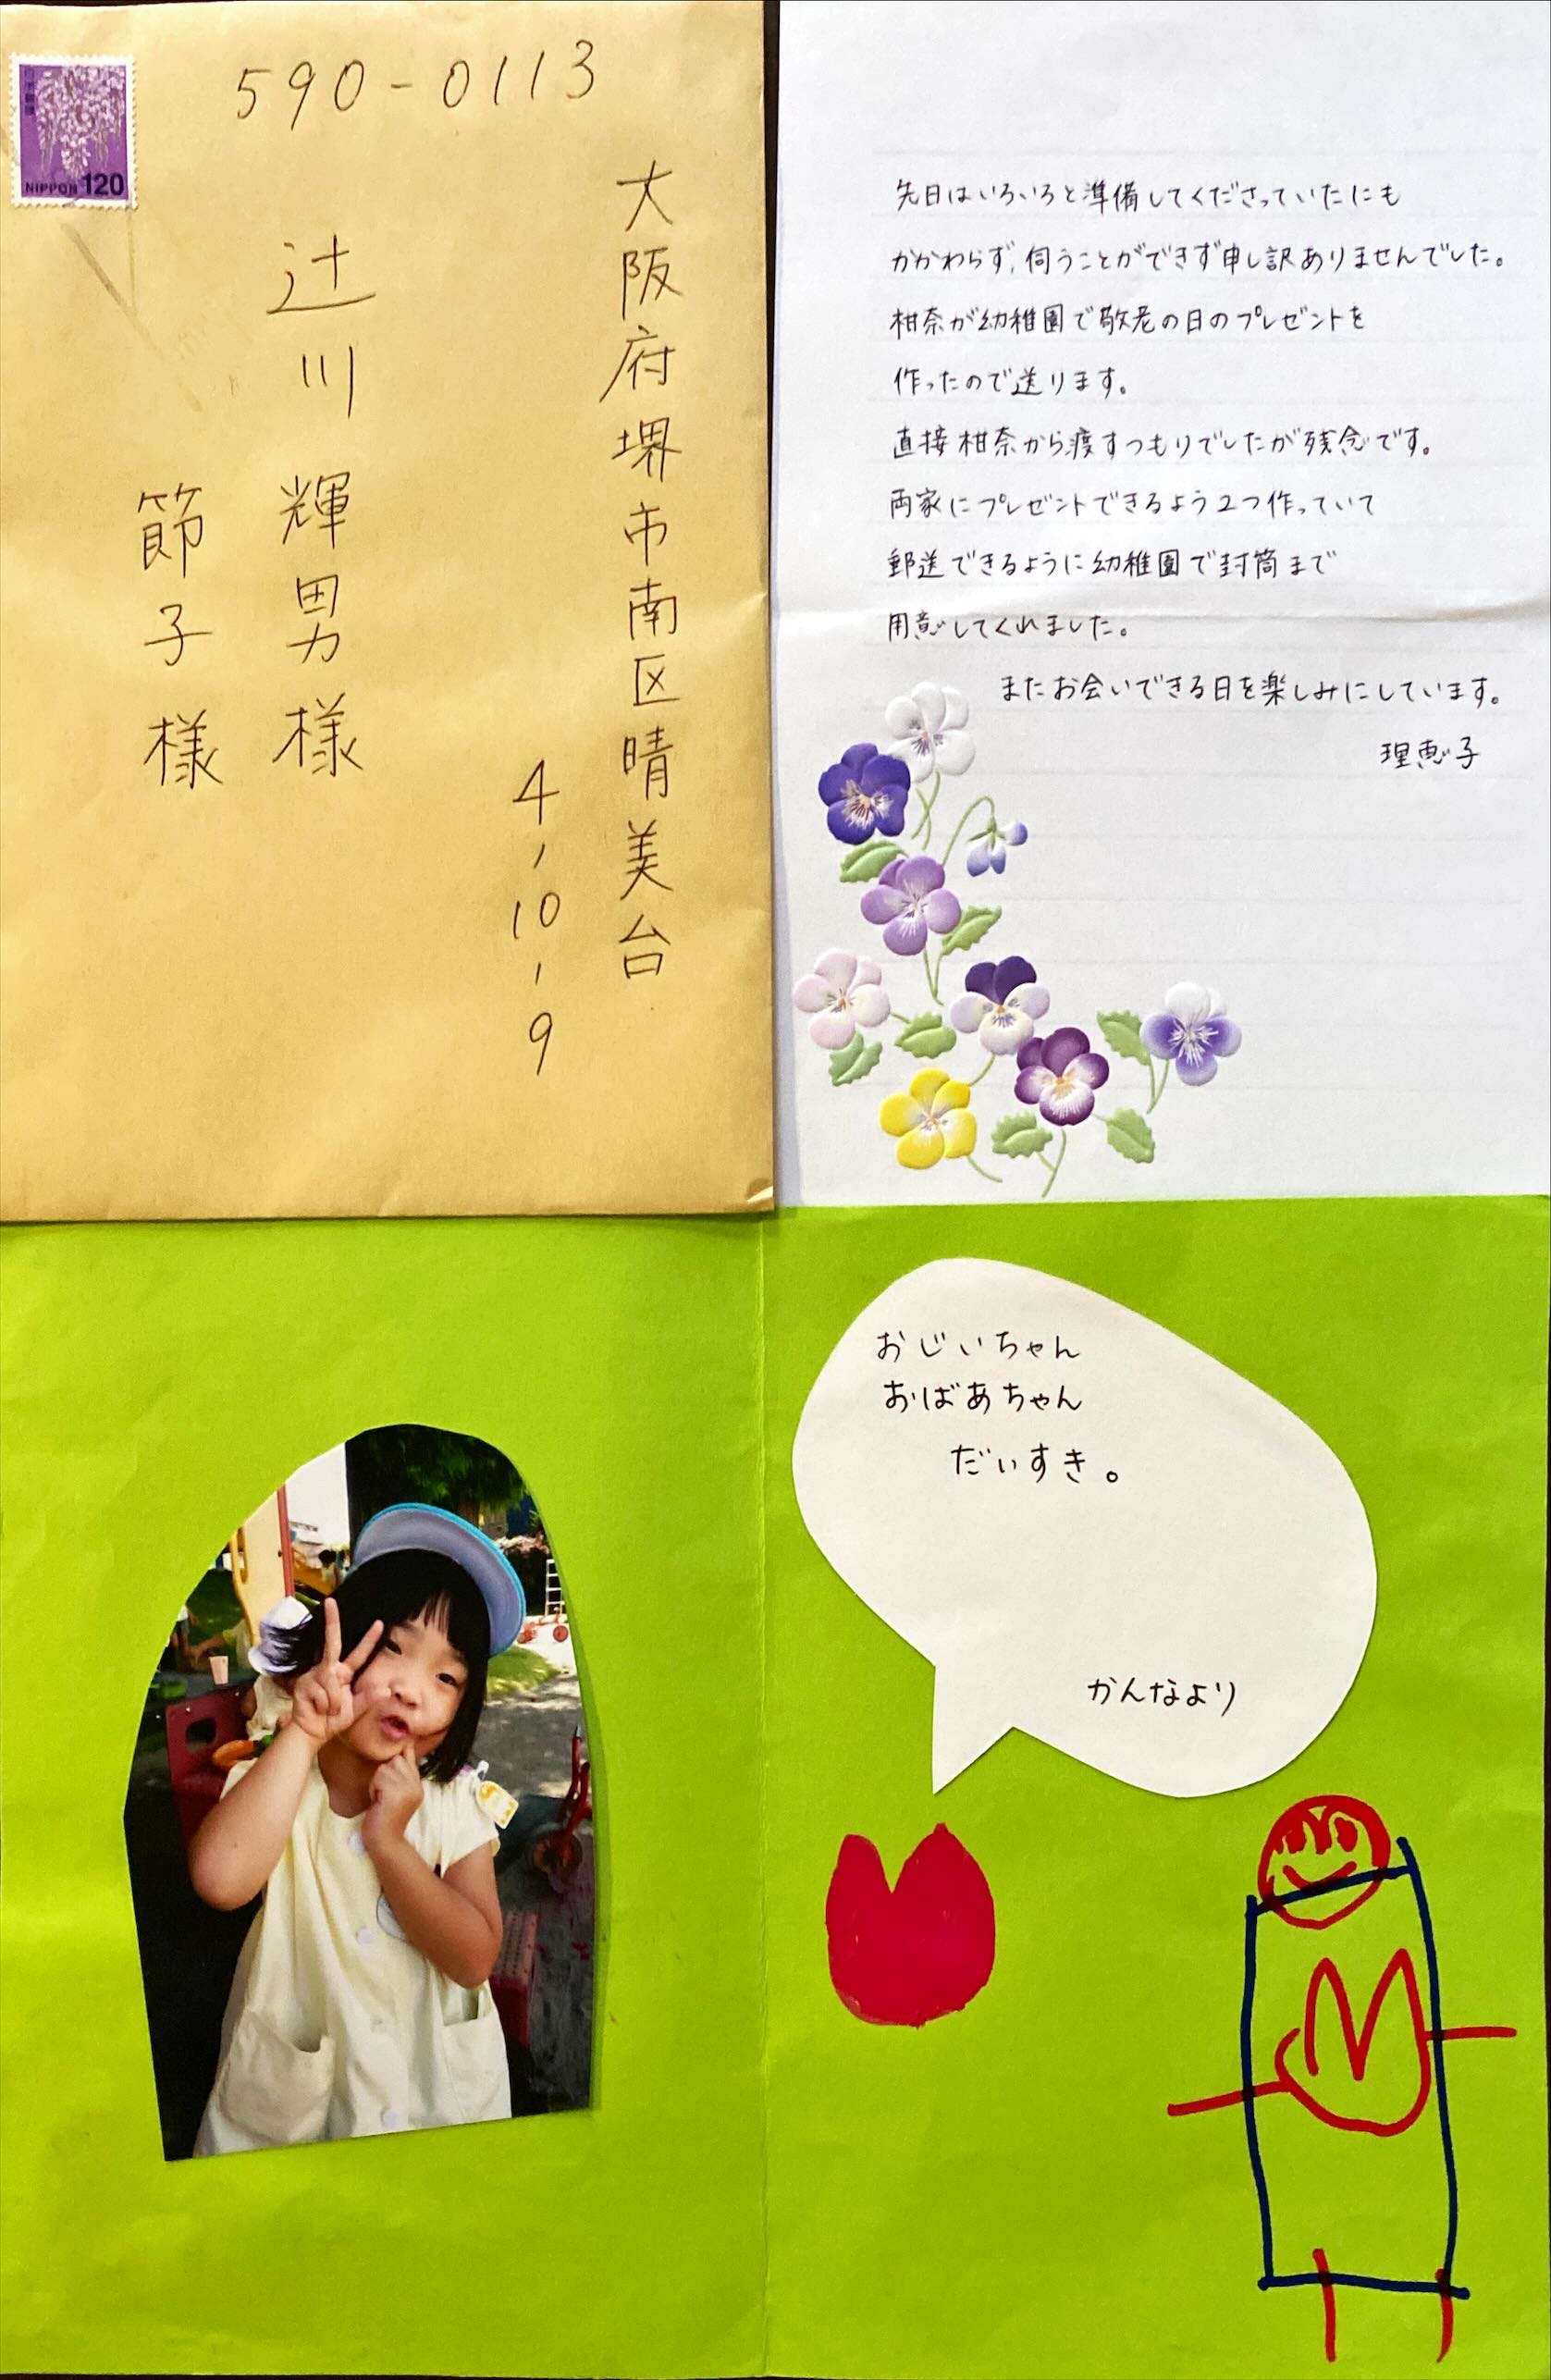 590-0113
大阪府堺市南区晴美台
4-10-9
辻川 輝男様
節子様
NIPPON 120
先日はいろいろと準備してくださっていたにも
かかわらず、伺うことができず申し訳ありませんでした。
柑奈が幼稚園で敬老の日のプレゼントを
作ったので送ります。
直接柑奈から渡すつもりでしたが残念です。
両家にプレゼントできるよう2つ作っていて
郵送できるように幼稚園で封筒まで
用意してくれました。
またお会いできる日を楽しみにしています。
理恵子
おじいちゃん
おばあちゃん
だいすき。
かんなより